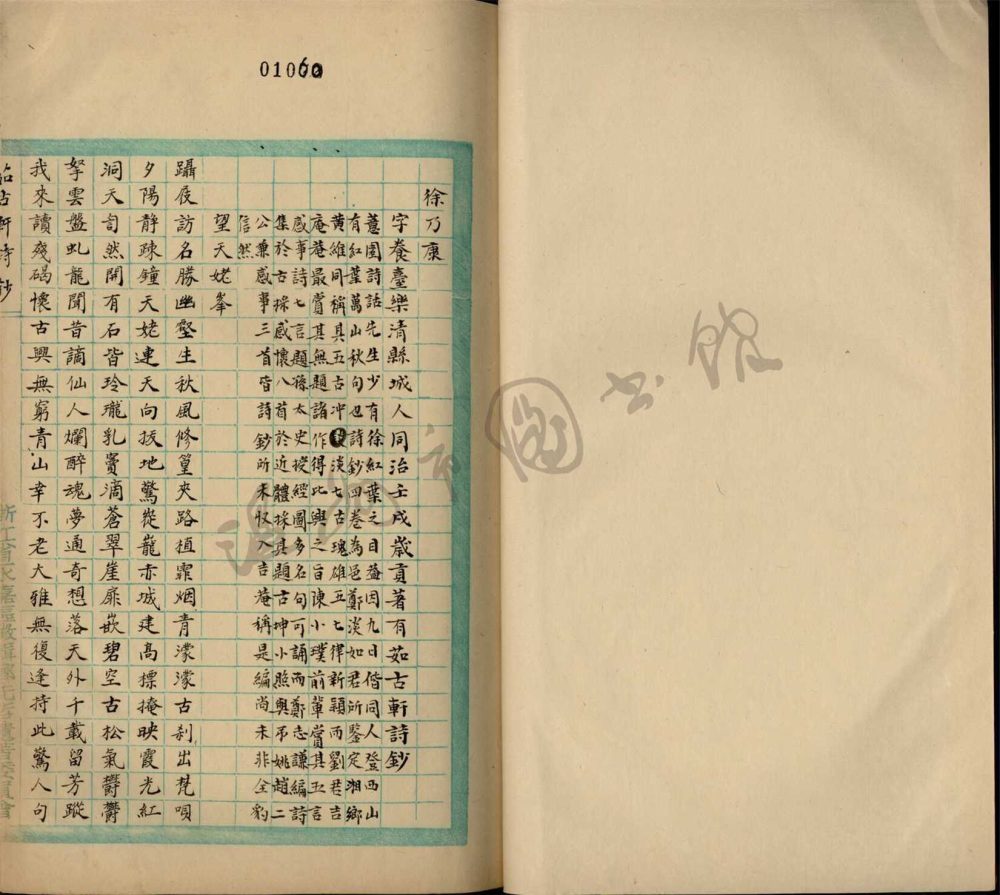 01060
徐乃康
字養臺樂清縣城人同治壬戌歲貢著有茹古軒詩鈔
薏園詩話先生少有徐紅葉之目葢因九日偕同人登西山
有紅葉萬山秋句也詩鈔四卷為邑鄭淡如君所鑒定湘鄉
黃維同稱其五古冲淡七古瑰雄五七律新穎而劉君吉
庵菴最賞其無題諸作得比興之旨陳小璞前輩嘗其五言
感事詩七言題孫太史授經圖多名句可誦而鄭志謙編詩
集於古採感懷八首於近體採其題古坤小照與弔姚趙二
公兼感事三首皆詩鈔所未收入吉菴稱是編尚未非全豹
信然
望天姥峯
躡屐訪名勝幽壑生秋風修篁夾路植霏烟青濛濛古刹出梵唄
夕陽静疎鐘天姥連天向拔地驚巃嵸赤城建高標掩映霞光紅
洞天訇然開有石皆玲瓏乳竇滴蒼翠崖扉嵌碧空古松氣鬱鬱
拏雲盤虬龍聞昔謫仙人爛醉魂夢通奇想落天外千載留芳蹤
我來讀殘碣懷古興無窮青山幸不老大雅無復逢持此驚人句
茹古軒詩鈔
溫州市圖書館